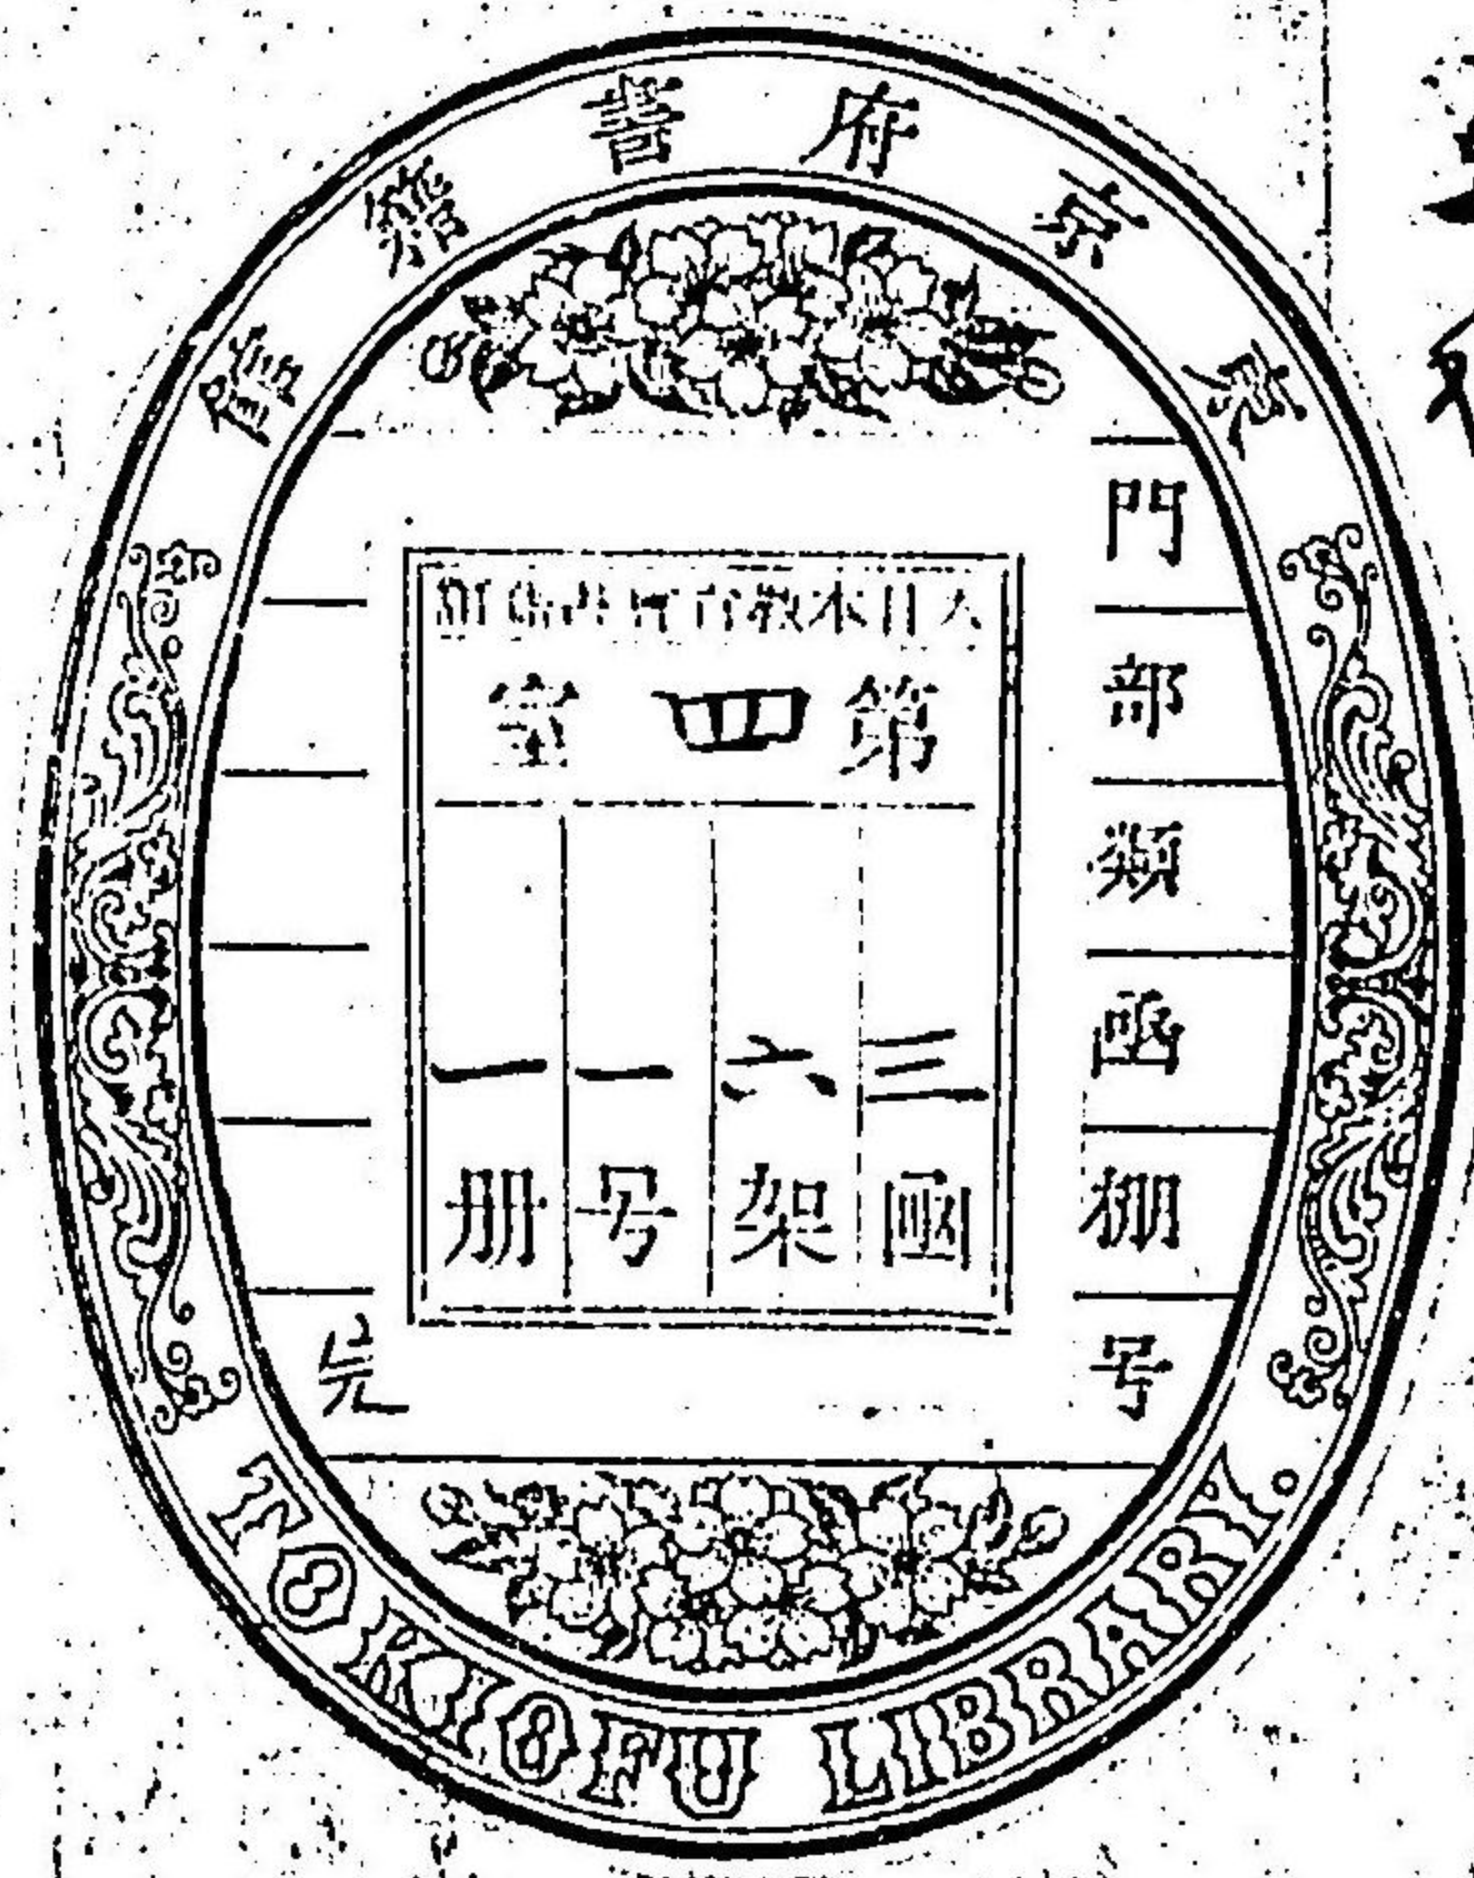 東京府書籍館
門
部
類
函
棚
号
大日本教育會書籍館
第四室
三函
六架
一号
一册
TOKIOFU LIBRARY.